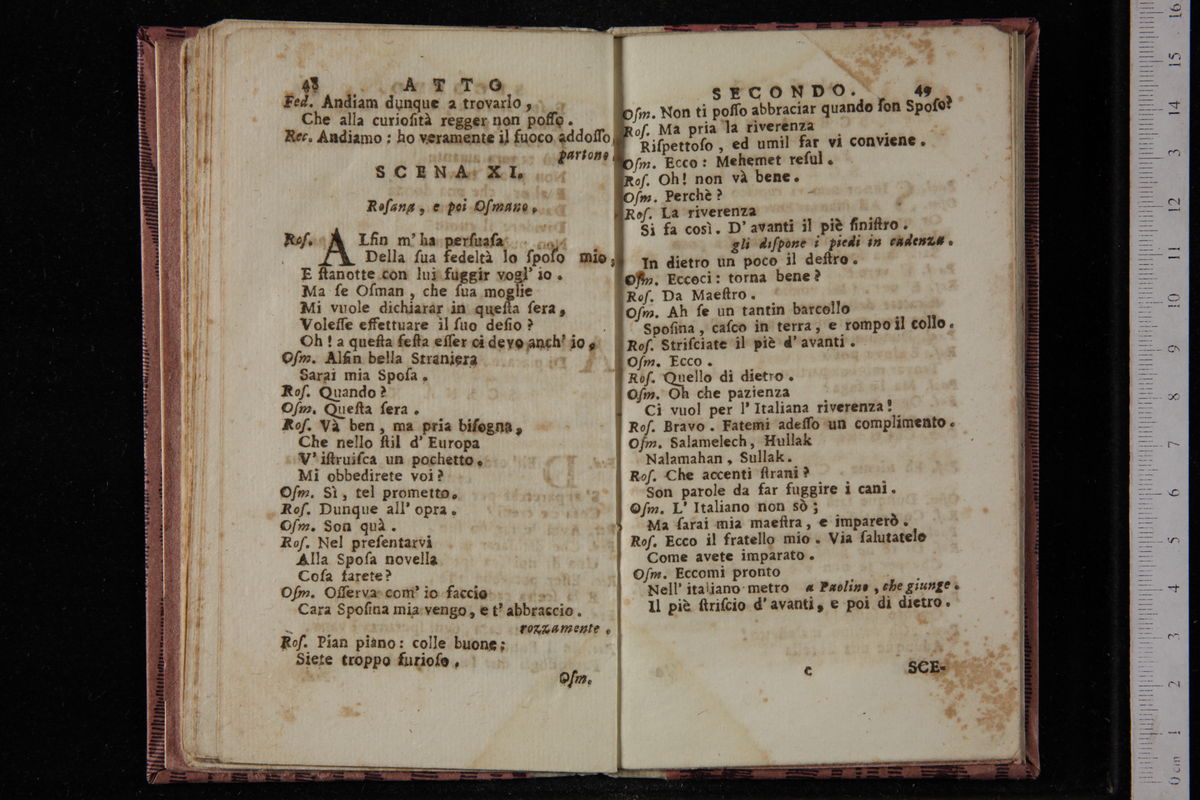 48 ATTO
Fed. Andiam dunque a trovarlo,
Che alla curioſità regger non poſſo.
Rec. Andiamo: ho veramente il fuoco addoſſo.
partono.
SCENA XI.
Roſana, e poi Oſmano.
Roſ. ALfin m'ha perſuaſa
Della ſua fedeltà lo ſpoſo mio;
E ſtanotte con lui fuggir vogl' io.
Ma ſe Oſman, che ſua moglie
Mi vuole dichiarar in queſta ſera,
Voleſſe effettuare il ſuo deſio?
Oh! a queſta feſta eſſer ci devo anch' io.
Oſm. Alfin bella Straniera
Sarai mia Spoſa.
Roſ. Quando?
Oſm. Queſta ſera.
Roſ. Và ben, ma pria biſogna,
Che nello ſtil d' Europa
V' iſtruiſca un pochetto.
Mi obbedirete voi?
Oſm. Sì, tel prometto.
Roſ. Dunque all' opra.
Oſm. Son quà.
Roſ. Nel preſentarvi
Alla Spoſa novella
Coſa farete?
Oſm. Oſſerva com' io faccio
Cara Spoſina mia vengo, e t' abbraccio.
rozzamente.
Roſ. Pian piano: colle buone;
Siete troppo furioſo.
Oſm.
SECONDO. 49
Oſm. Non ti poſſo abbraciar quando ſon Spoſo?
Roſ. Ma pria la riverenza
Riſpettoſo, ed umil far vi conviene.
Oſm. Ecco: Mehemet reſul.
Roſ. Oh! non và bene.
Oſm. Perchè?
Roſ. La riverenza
Si fa così. D' avanti il piè ſiniſtro.
gli diſpone i piedi in cadenza.
In dietro un poco il deſtro.
Oſm. Eccoci: torna bene?
Roſ. Da Maeſtro.
Oſm. Ah ſe un tantin barcollo
Spoſina, caſco in terra, e rompo il collo.
Roſ. Striſciate il piè d' avanti.
Oſm. Ecco.
Roſ. Quello di dietro.
Oſm. Oh che pazienza
Ci vuol per l' Italiana riverenza!
Roſ. Bravo. Fatemi adeſſo un complimento.
Oſm. Salamelech, Hullak
Nalamahan, Sullak.
Roſ. Che accenti ſtrani?
Son parole da far fuggire i cani.
Oſm. L' Italiano non sò;
Ma ſarai mia maeſtra, e imparerò.
Roſ. Ecco il fratello mio. Via ſalutatelo
Come avete imparato.
Oſm. Eccomi pronto
Nell' italiano metro a Paolino, che giunge.
Il piè ſtriſcio d' avanti, e poi di dietro.
C SCE-
0 cm 1 2 3 4 5 6 7 8 9 10 11 12 3 14 15 16